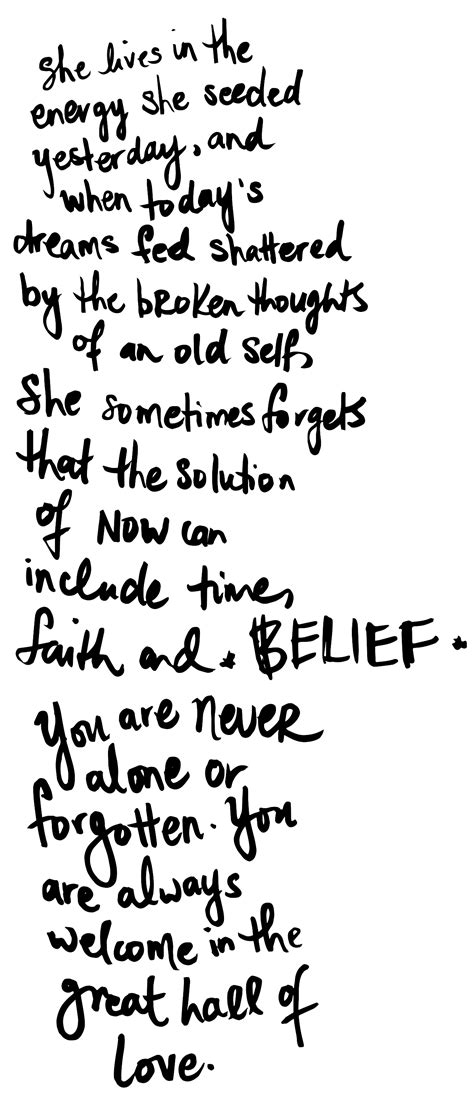 She lives in the
energy she seeded
yesterday, and
when today's
dreams feel shattered
by the broken thoughts
of an old self,
She sometimes forgets
that the solution
of NOW can
include time,
faith and * BELIEF *
You are never
alone or
forgotten. You
are always
welcome in the
great hall of
love.